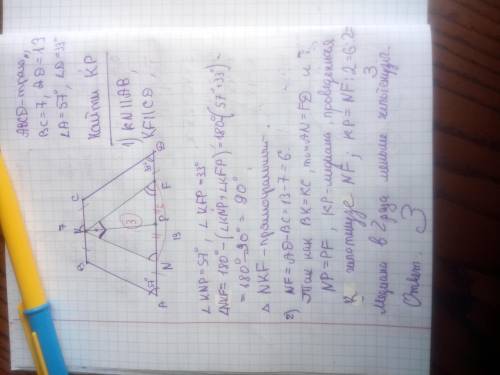 ABCD-трап.,
BC=7, AD=13
∠A=57°, ∠D=33°
Найти KP
1) KN||AB,
KF||CD,
7
B
K
C
3
57°
33°
A
N
P
F
D
13
∠KNP=57°, ∠KFP=33°
∠NKF=180°-(∠KNP+∠KFP)=180°-(57°+33°)=
=180°-90°=90°
△NKF-прямоугольный.
2) NF=AD-BC=13-7=6
Так как BK=KC, то AN=FD и
NP=PF, KP-медиана, проведенная
к гипотенузе NF, KP=NF:2=6:2=
3
Медиана в 2 раза меньше гипотенузы.
Ответ. 3